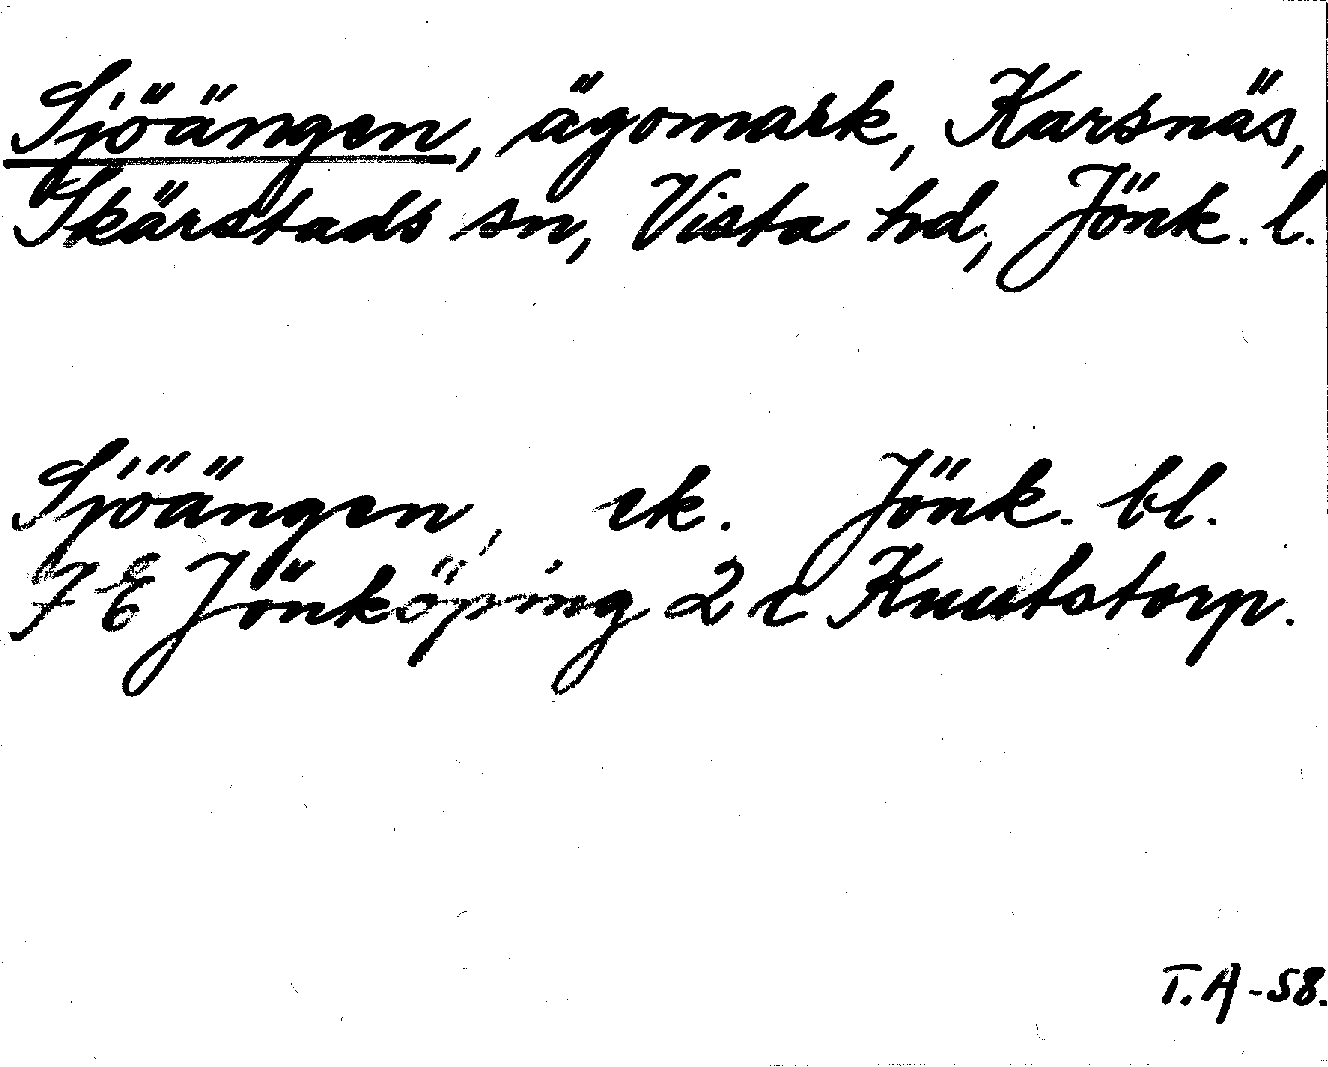 Sjöängen, ägomark, Karsnäs,
Skärstads sn, Vista hd, Jönk. l.
Sjöängen, ek. Jönk. bl.
7 E Jönköping 2 c Knutstorp.
T.A-58.